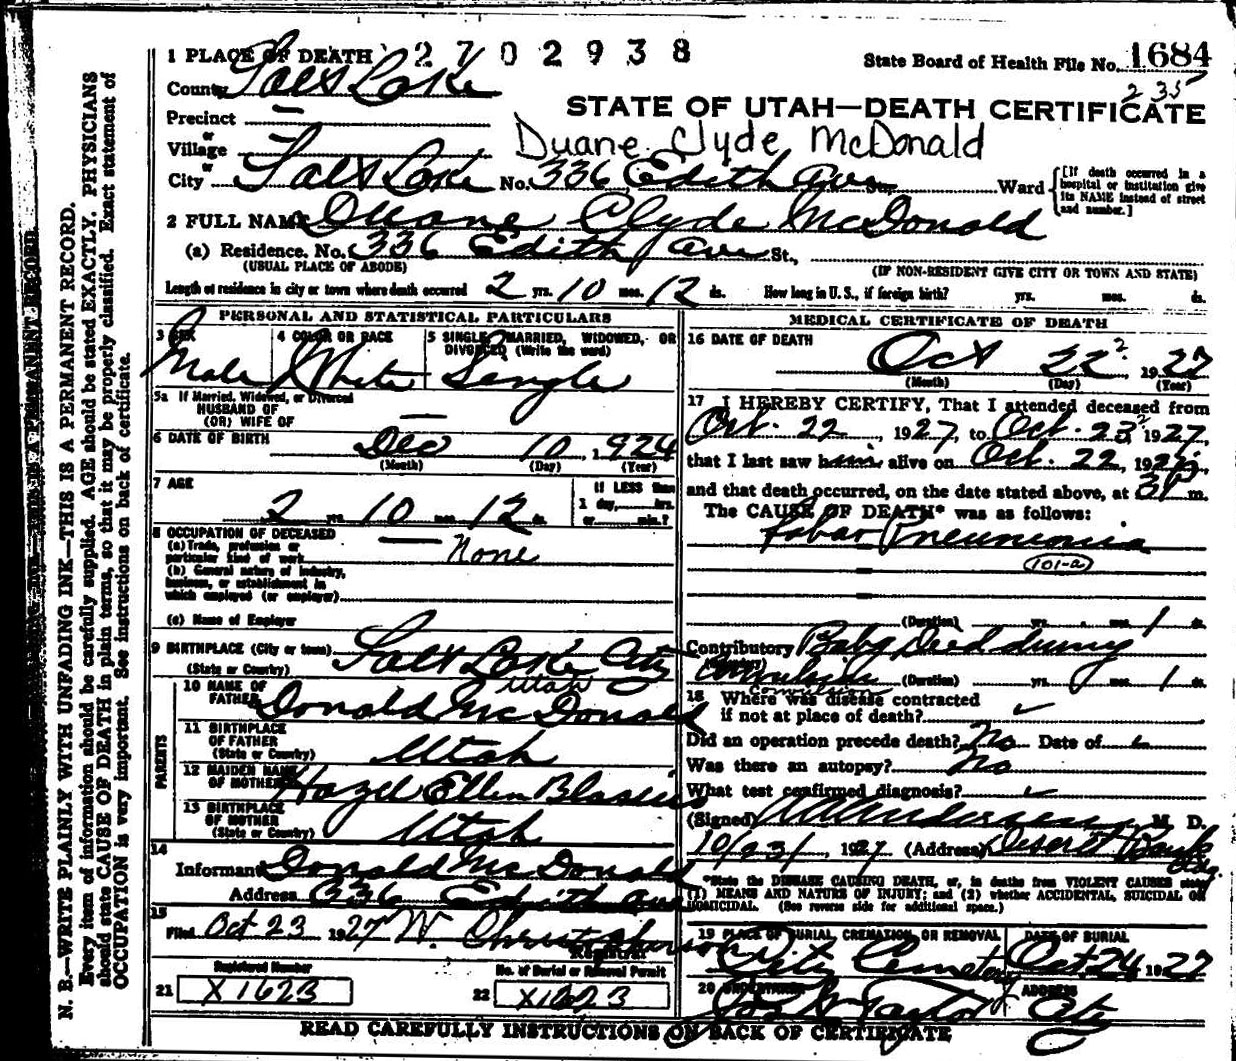 1 PLACE OF DEATH 2702938
State Board of Health File No. 1684
235
County Salt Lake
STATE OF UTAH—DEATH CERTIFICATE
Precinct —
or
Village
Duane Clyde McDonald
or
City Salt Lake No. 336 Edith Ave St., Ward [If death occurred in a hospital or institution give its NAME instead of street and number.]
2 FULL NAME Duane Clyde McDonald
(a) Residence. No. 336 Edith Ave St.,
(USUAL PLACE OF ABODE) (IF NON-RESIDENT GIVE CITY OR TOWN AND STATE)
Length of residence in city or town where death occurred 2 yrs. 10 mos. 12 ds. How long in U. S., if foreign birth? yrs. mos. ds.
PERSONAL AND STATISTICAL PARTICULARS
3 SEX
Male
4 COLOR OR RACE
White
5 SINGLE, MARRIED, WIDOWED, OR
DIVORCED (Write the word)
Single
5a If Married, Widowed, or Divorced
HUSBAND OF
(OR) WIFE OF —
6 DATE OF BIRTH Dec 10, 1924
(Month) (Day) (Year)
7 AGE
2 yrs. 10 mos. 12 ds.
If LESS than
1 day, hrs.
or min.?
8 OCCUPATION OF DECEASED
(a) Trade, profession or
particular kind of work — None
(b) General nature of industry,
business, or establishment in
which employed (or employer)
(c) Name of Employer
9 BIRTHPLACE (City or town) Salt Lake City
(State or Country) Utah
PARENTS
10 NAME OF
FATHER Donald McDonald
11 BIRTHPLACE
OF FATHER
(State or Country) Utah
12 MAIDEN NAME
OF MOTHER Hazel Ellen Blasius
13 BIRTHPLACE
OF MOTHER
(State or Country) Utah
14
Informant Donald McDonald
Address 336 Edith Ave
15
Filed Oct 23 1927 W. Christopherson
Registrar
Registered Number
21 X1623
No. of Burial or Removal Permit
22 X1623
MEDICAL CERTIFICATE OF DEATH
16 DATE OF DEATH
Oct 22 1927
(Month) (Day) (Year)
17 I HEREBY CERTIFY, That I attended deceased from
Oct. 22, 1927, to Oct. 23, 1927,
that I last saw him alive on Oct. 22, 1927,
and that death occurred, on the date stated above, at 3 P m.
The CAUSE OF DEATH* was as follows:
Lobar Pneumonia
(101-a)
(Duration) yrs. mos. 1 ds.
Contributory Baby Died during
convulsion (Duration) yrs. mos. 1 ds.
convulsion
18 Where was disease contracted
if not at place of death?
Did an operation precede death? No Date of
Was there an autopsy? No
What test confirmed diagnosis?
(Signed) M. D.
10/23/, 1927 (Address) Deseret Bank Bldg.
*State the DISEASE CAUSING DEATH, or, in deaths from VIOLENT CAUSES state
(1) MEANS AND NATURE OF INJURY; and (2) whether ACCIDENTAL, SUICIDAL OR
HOMICIDAL. (See reverse side for additional space.)
19 PLACE OF BURIAL, CREMATION, OR REMOVAL
City Cemetery
DATE OF BURIAL
Oct. 24 1927
20 UNDERTAKER
Jos Wm Taylor
ADDRESS
City
READ CAREFULLY INSTRUCTIONS ON BACK OF CERTIFICATE
N. B.—WRITE PLAINLY WITH UNFADING INK—THIS IS A PERMANENT RECORD.
Every item of information should be carefully supplied. AGE should be stated EXACTLY. PHYSICIANS
should state CAUSE OF DEATH in plain terms, so that it may be properly classified. Exact statement of
OCCUPATION is very important. See instructions on back of certificate.